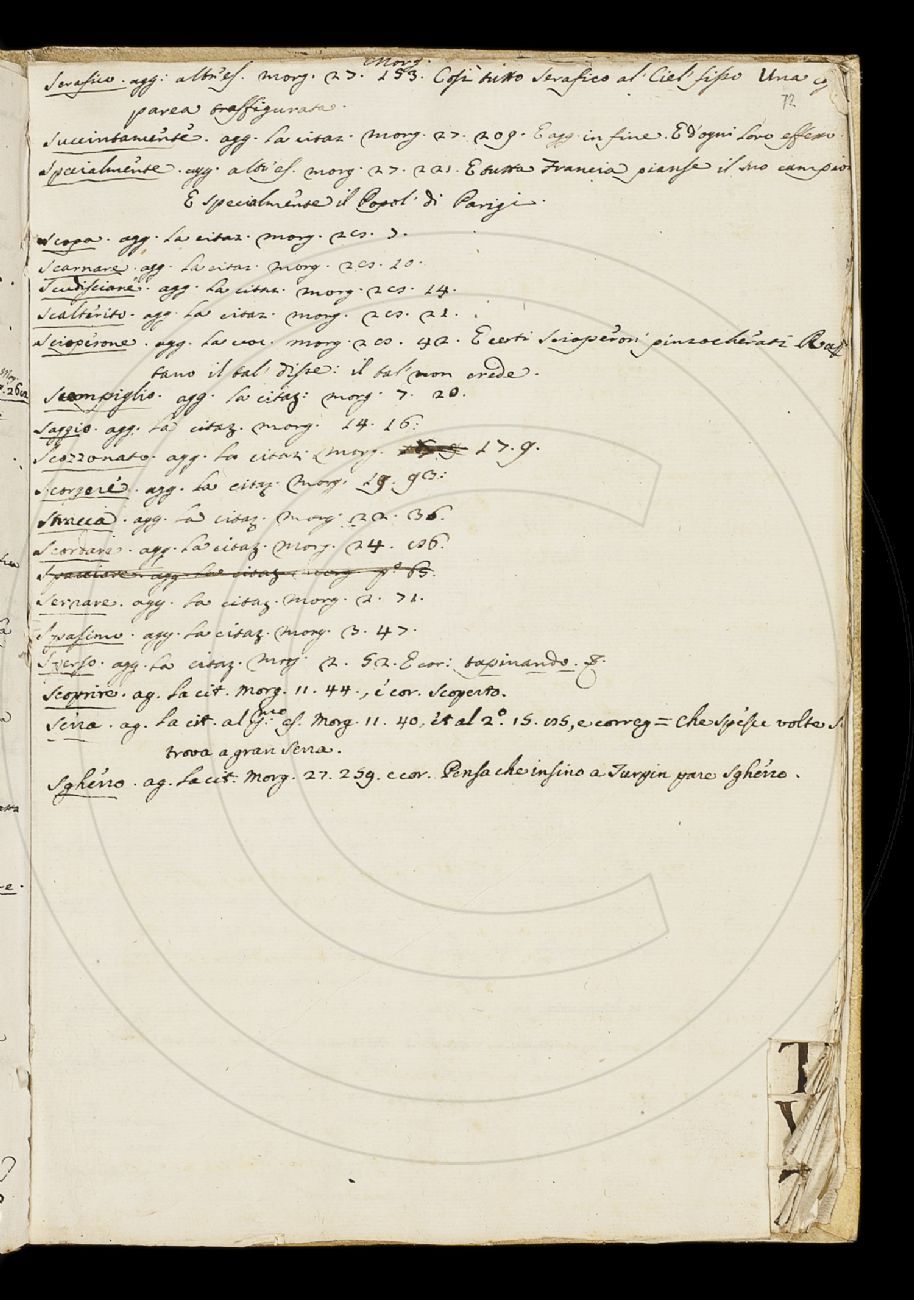 Morg.
Serafico. agg: altr'es. morg. 27. 153. Così tutto serafico al Ciel fisso Una
72
parea trasfigurata.
Succintamente. agg. la citaz. morg. 27. 209. E agg. in fine. E d'ogni loro effetto.
Specialmente. agg. altr'es. morg. 27. 221. E tutta Francia pianse il suo campion
E specialmente il Popol' di Parigi.
Scopa. agg. la citaz. morg. 28. 7.
Scarnare. agg. la citaz. morg. 28. 10.
agg. la citaz. morg. 28. 14.
Scalterito. agg. la citaz. morg. 28. 21.
Scioperone. agg. la voc. morg. 28. 42. E certi scioperon' pinzocherati Rap
tano il tal' disse: il tal' non crede.
Scompiglio. agg. la citaz: morg. 7. 20.
Saggio. agg. la citaz. morg. 14. 16:
Scozzonato. agg. la citaz. morg. 17. 9.
Scorgere. agg. la citaz. morg. 19. 93:
Straccia. agg. la citaz. morg. 22. 36.
Scordare. agg. la citaz. morg. 24. 86.
Spacciare. agg. la citaz. morg. 65.
Sernare. agg. la citaz. morg. 2. 71.
Spasimo. agg. la citaz. morg. 3. 47.
Sperso. agg. la citaz. morg. 2. 52. E cor: tapinando.
Scoprire. ag. la cit. Morg. 11. 44., e cor. scoperto.
Serra. ag. la cit. al pmo es. Morg. 11. 40, et al 2º. 15. 85, e correg = Che spesse volte si
trova a gran serra.
Sgherro. ag. la cit. Morg. 27. 259. e cor. Pensa che insino a Turpin pare sgherro.